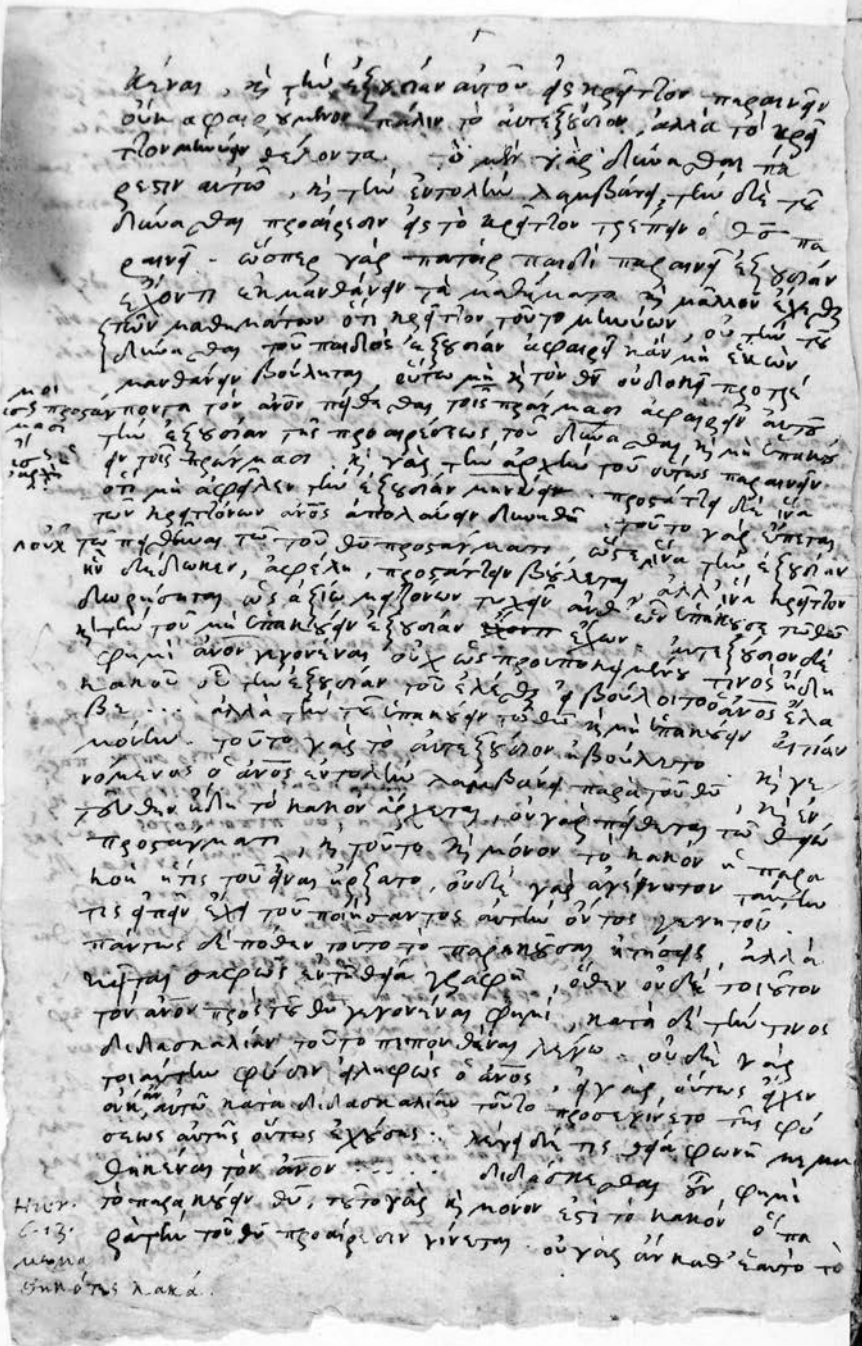 κέναι, κ̀ τὴν ἐξουσίαν αὐτοῦ εἰς κρεῖττον παραινεῖν
οὐκ ἀφαιρούμενον πάλιν τὸ αὐτεξούσιον, ἀλλὰ τὸ κρεῖ
ττον μηνύειν θέλοντα. τὸ μὲν γὰρ δύνασθαι πά
ρεστιν αὐτῶ, κ̀ τὴν ἐντολὴν λαμβάνει, τὴν δὲ τοῦ
δύνασθαι προαίρεσιν εἰς τὸ κρεῖττον τρέπειν ὁ θς πα
ραινεῖ. ὥσπερ γὰρ πατὴρ παιδὶ παραινεῖ ἐξουσίαν
ἔχοντι μανθάνειν τὰ μαθήματα κ̀ μᾶλλον ἔχεσθαι
τῶν μαθημάτων ὅτι κρεῖττον τοῦτο μηνύων, οὐ τὴν τοῦ
δύνασθαι τοῦ παιδὸς ἐξουσίαν ἀφαιρεῖ κἂν μὴ ἑκὼν
μανθάνειν βούληται, οὕτω κ̀ τὸν θν οὐ δοκεῖ προτρέ
ποντα τὸν ἄνον πείθεσθαι τοῖς προστάγμασι ἀφαιρεῖν αὐτοῦ
τὴν ἐξουσίαν τῆς προαιρέσεως, τοῦ δύνασθαι κ̀ μὴ ὑπακού
ειν τοῖς προστάγμασι. κ̀ γὰρ τὴν ἀρχὴν τοῦ οὕτως παραινεῖν
ὅτι μὴ ἀφεῖλεν τὴν ἐξουσίαν μηνύειν. προστάττει δὲ ἵνα
τῶν κρειττόνων ἄνος ἀπολαύειν δυνηθῆ. τοῦτο γὰρ ἕπεται
τῶ πειθομένω τῶ τοῦ θυ προστάγματι, ὥστε οὐχ ἵνα τὴν ἐξουσίαν
ἣν δέδωκεν, ἀφέλη, προστάττειν βούλεται, ἀλλ' ἵνα κρεῖττον
δωρήσηται ὡς ἀξίω μειζόνων τυχεῖν ἀνθ' ὧν ὑπήκουσε τῶ θῶ
κ̀ τὴν τοῦ μὴ ὑπακούειν ἐξουσίαν ἔχων. αὐτεξούσιον δὲ
φημὶ ἄνον γεγονέναι οὐχ ὡς προυποκειμένου τινὸς ἤδη
κακοῦ οὗ τὴν ἐξουσίαν τοῦ ἑλέσθαι εἰ βούλοιτο ὁ ἄνος ἔλα
βε ... ἀλλὰ τὴν τοῦ ὑπακούειν τῶ θῶ κ̀ μὴ ὑπακούειν αἰτίαν
μόνην. τοῦτο γὰρ τὸ αὐτεξούσιον ἠβούλετο κ̀ γε
νόμενος ὁ ἄνος ἐντολὴν λαμβάνει παρὰ τοῦ θυ, κ̀ ἐν
τεῦθεν ἤδη τὸ κακὸν ἄρχεται, οὐ γὰρ πείθεται τῶ θείω
προστάγματι, κ̀ τοῦτο κ̀ μόνον τὸ κακὸν ἡ παρα
κοὴ ἥτις τοῦ εἶναι ἤρξατο, οὐδὲ γὰρ ἀγένητον ταύτην
τις εἰπεῖν ἔχει τοῦ ποιήσαντος αὐτὴν ὄντος γενητοῦ.
πάντως δὲ πόθεν τοῦτο τὸ παρακοῦσαι ζητήσεις, ἀλλὰ
κεῖται σαφῶς ἐν τῆ θεία γραφῆ, ὅθεν οὐδὲ τοιοῦτον
τὸν ἄνον πρὸς τοῦ θυ γεγονέναι φημί, κατὰ δὲ τήν τινος
διδασκαλίαν τοῦτο πεπονθέναι λέγω. οὐδὲ γὰρ
τοιαύτην φύσιν εἰληφὼς ὁ ἄνος, εἰ γὰρ οὕτως εἶχεν
οὐκ ἂν αὐτῶ κατὰ διδασκαλίαν τοῦτο προσεγίνετο τῆς φύ
σεως αὐτῆς οὕτως ἐχούσης. λέγει δέ τις θεία φωνῆ μεμα
θηκέναι τὸν ἄνον ..... διδάσκεσθαι οὖν φημὶ
τὸ παρακούειν θυ, τοῦτο γὰρ κ̀ μόνον ἐστὶ τὸ κακὸν ὃ πα
ρὰ τὴν τοῦ θυ προαίρεσιν γίνεται. οὐ γὰρ ἂν καθ' ἑαυτὸ τὸ
Hier.
C. 13.
μεμα
θηκότες κακά.